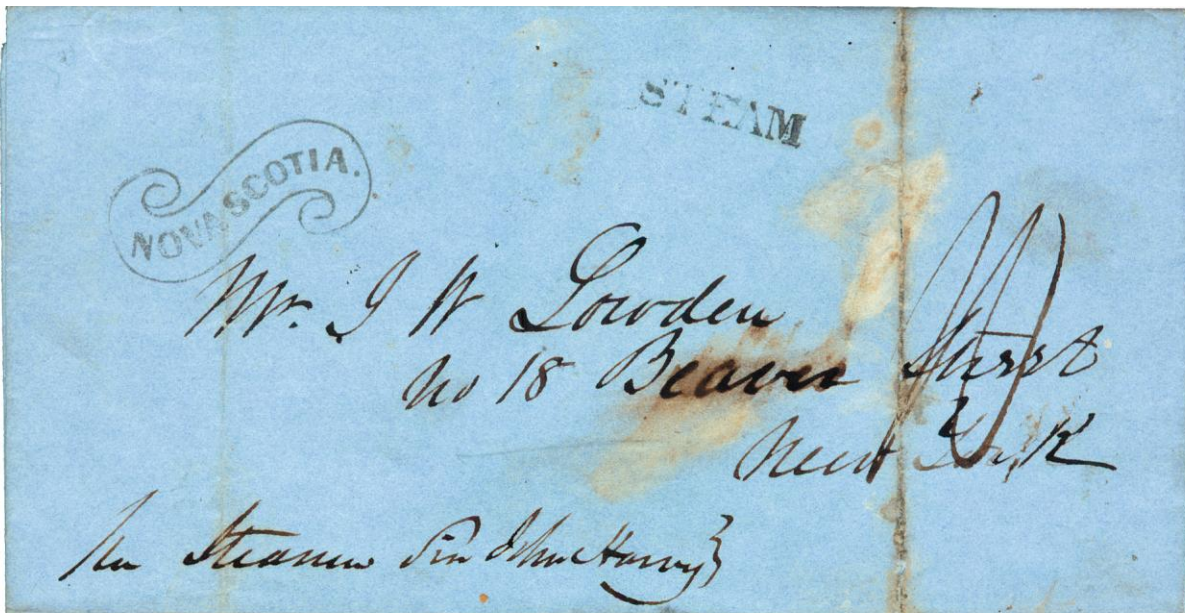 STEAM
NOVA SCOTIA.
Mr. J W Lowden
No 18 Beaver Street
New York
Per Steamer Sir John Harvey